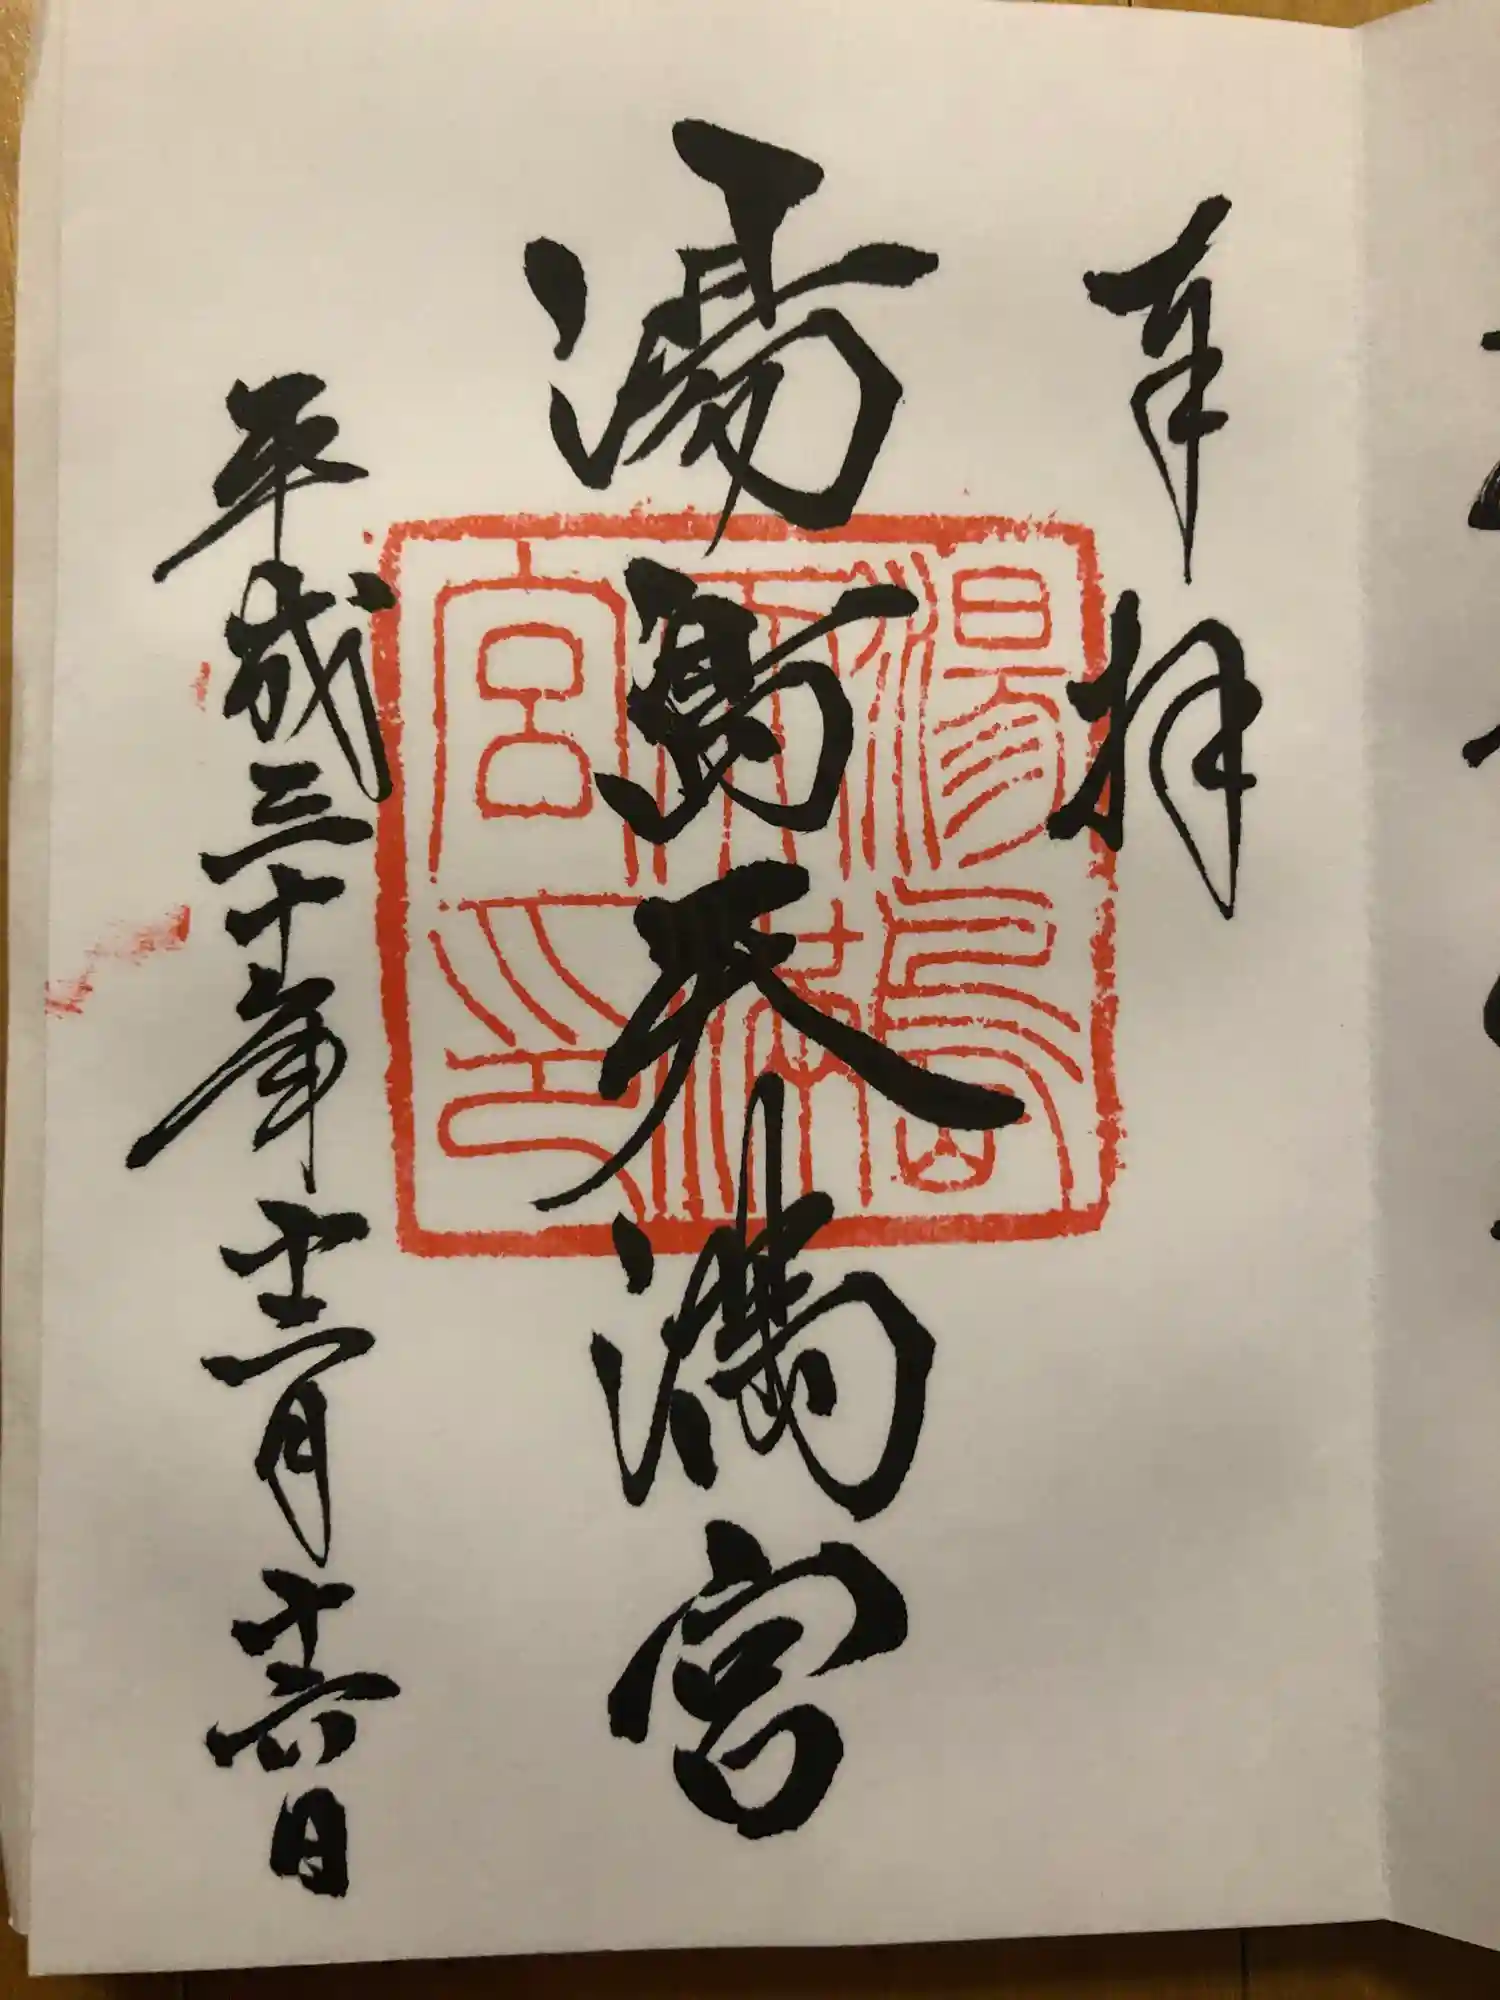 奉拝
湯島天満宮
湯島天満宮印
平成三十年十二月十六日